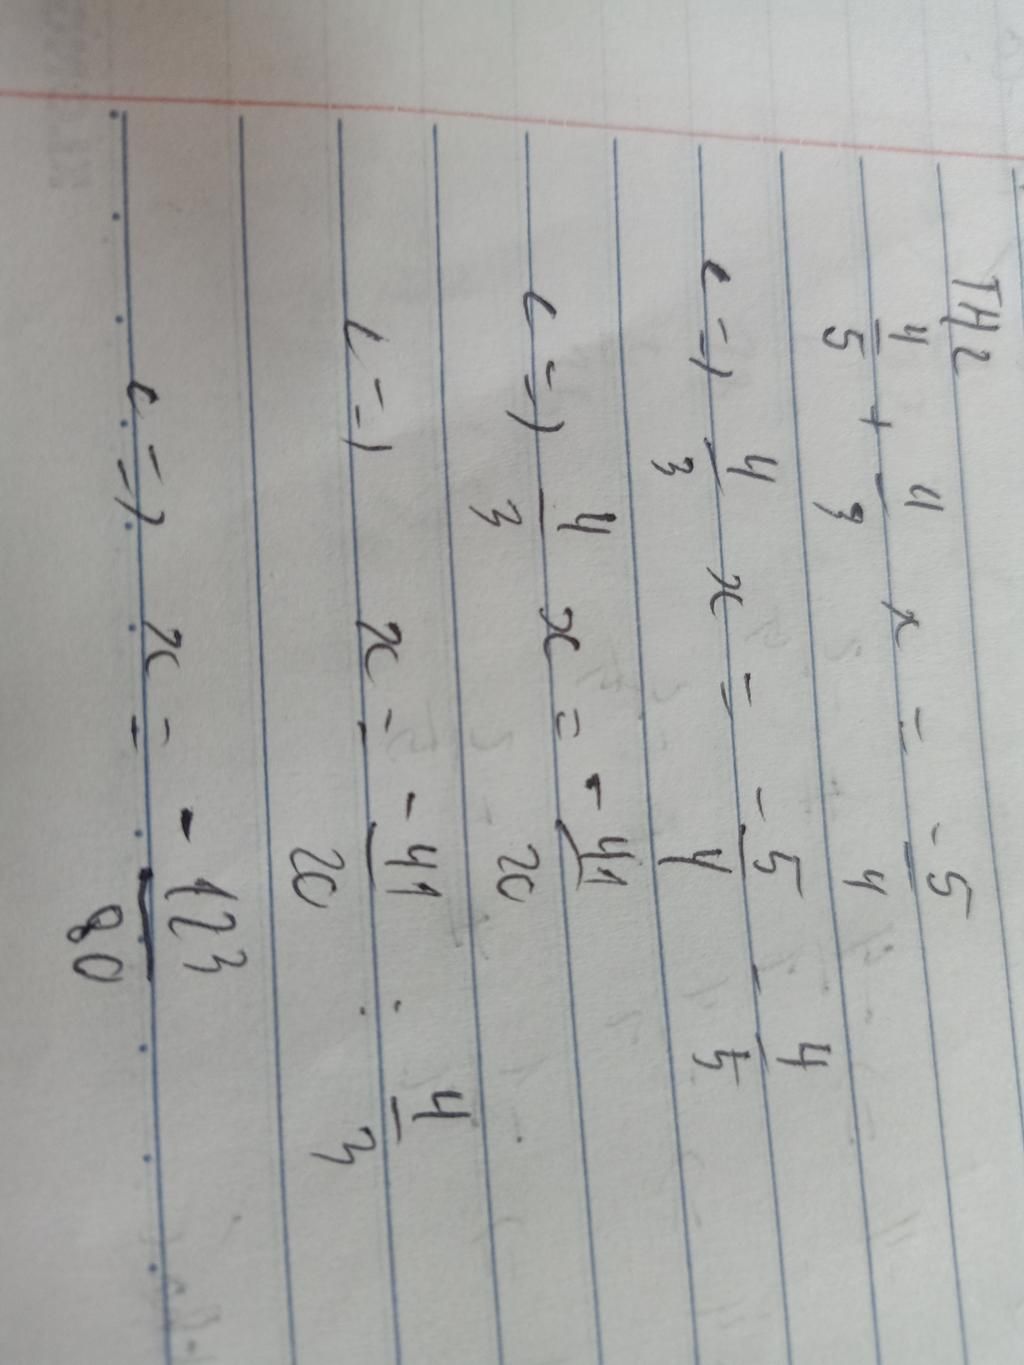 TH2
4/5 + 4/3 x = -5/4
<=> 4/3 x = -5/4 - 4/5
<=> 4/3 x = -41/20
<=> x = -41/20 : 4/3
<=> x = -123/80